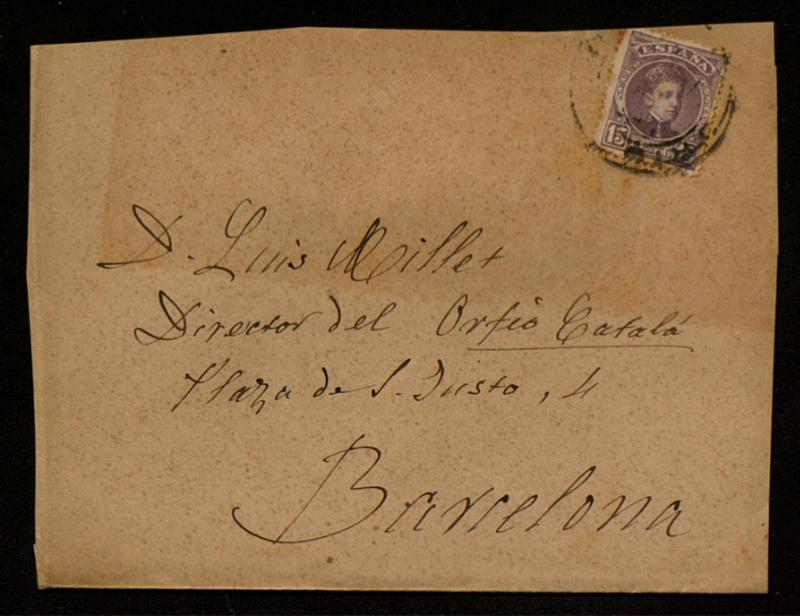 ESPAÑA
15
D. Luis Millet
Director del Orfeó Catalá
Plaza de S. Justo, 4
Barcelona